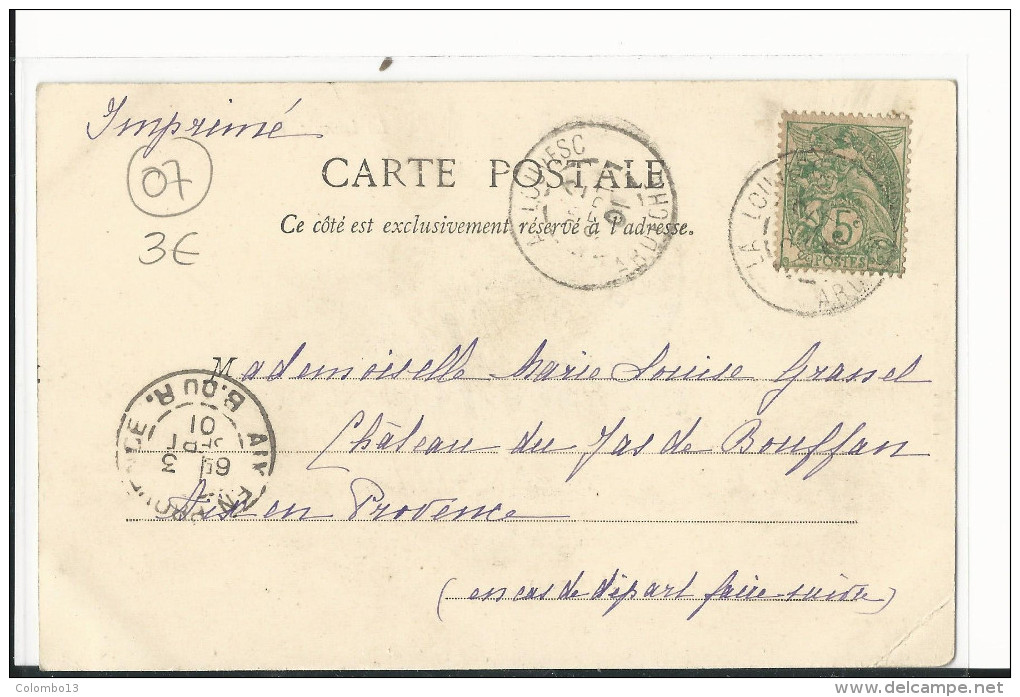 Imprimé
07
3€
CARTE POSTALE
Ce côté est exclusivement réservé à l'adresse.
LA LOUVESC
SEPT
01
ARDÈCHE
LA LOUV
5c
POSTES
Mademoiselle Marie Louise Grassel
Château du Jas de Bouffan
Aix en Provence
(en cas de départ faire suivre)
AIX EN PROVENCE
B. DU R.
3
SEPT
01
Colombo13
www.delcampe.net